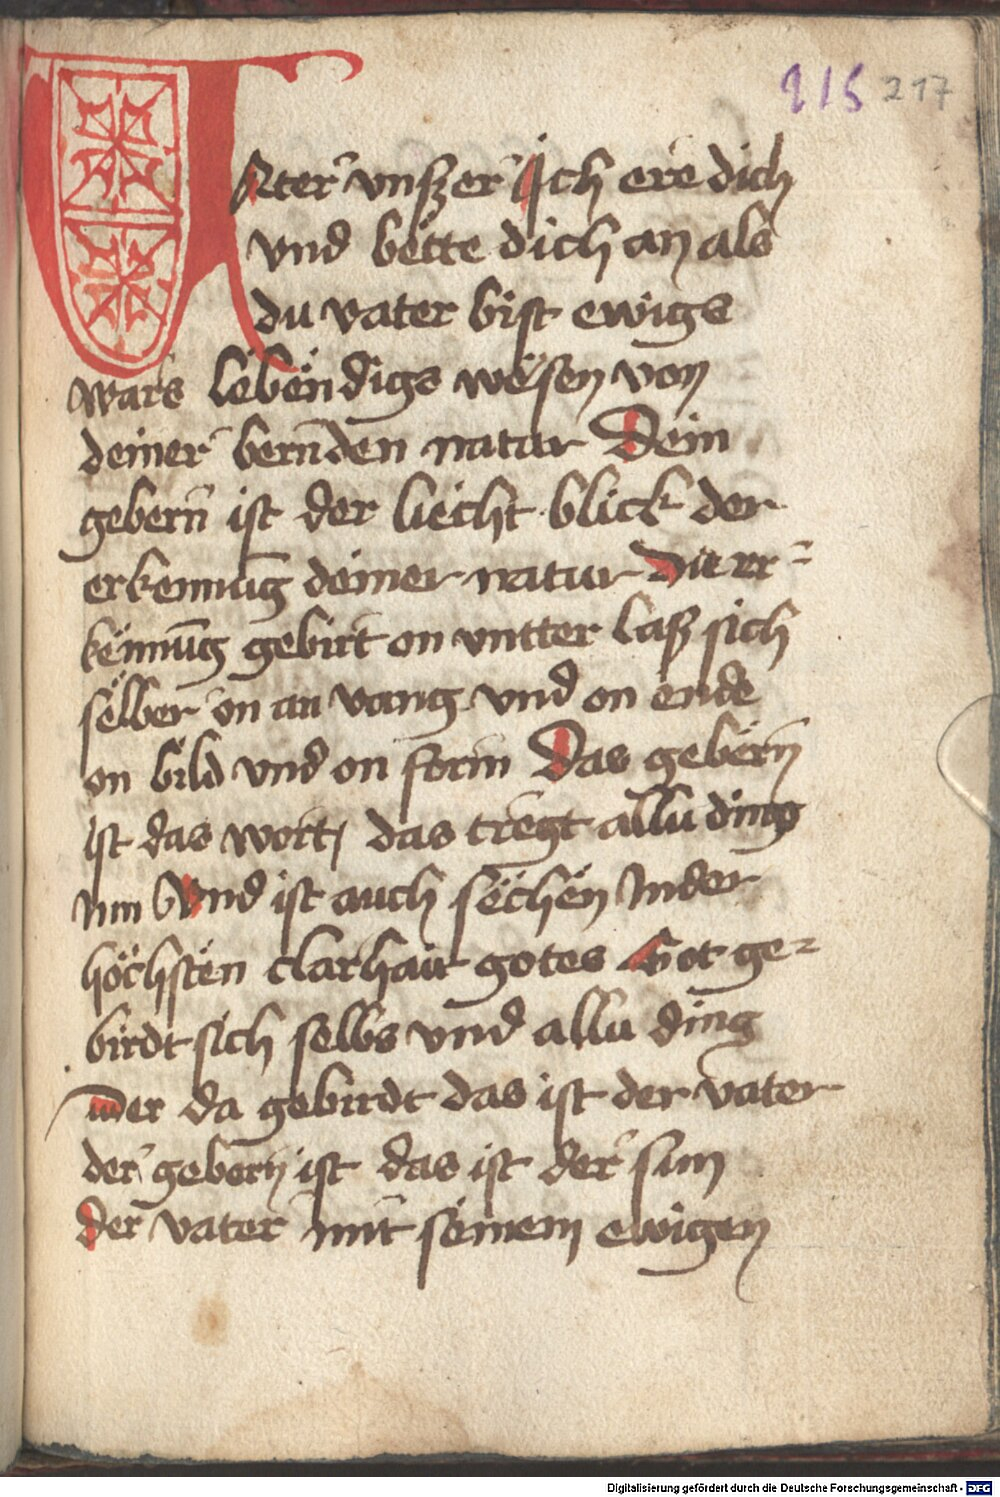 215 217
VAter vnßer Ich ere dich
vnd bette dich an als
du vater bist ewigs
wars lebendigs wesen von
deiner bernden natur Dein
gebern ist der liecht blick der
erkennung deiner natur Die er=
kennung gebirt on vntter laß sich
selber on an vang vnd on ende
on bild vnd on form Das gebern
ist das wort das tregt allu ding
Inn Vnd ist auch sechen In der
höchsten clarhait gotes Got ge=
birdt sich selbs vnd allu ding
wer da gebirdt das ist der vater
der gebern ist das ist der sun
der vater mit seinem ewigen
Digitalisierung gefördert durch die Deutsche Forschungsgemeinschaft - DFG